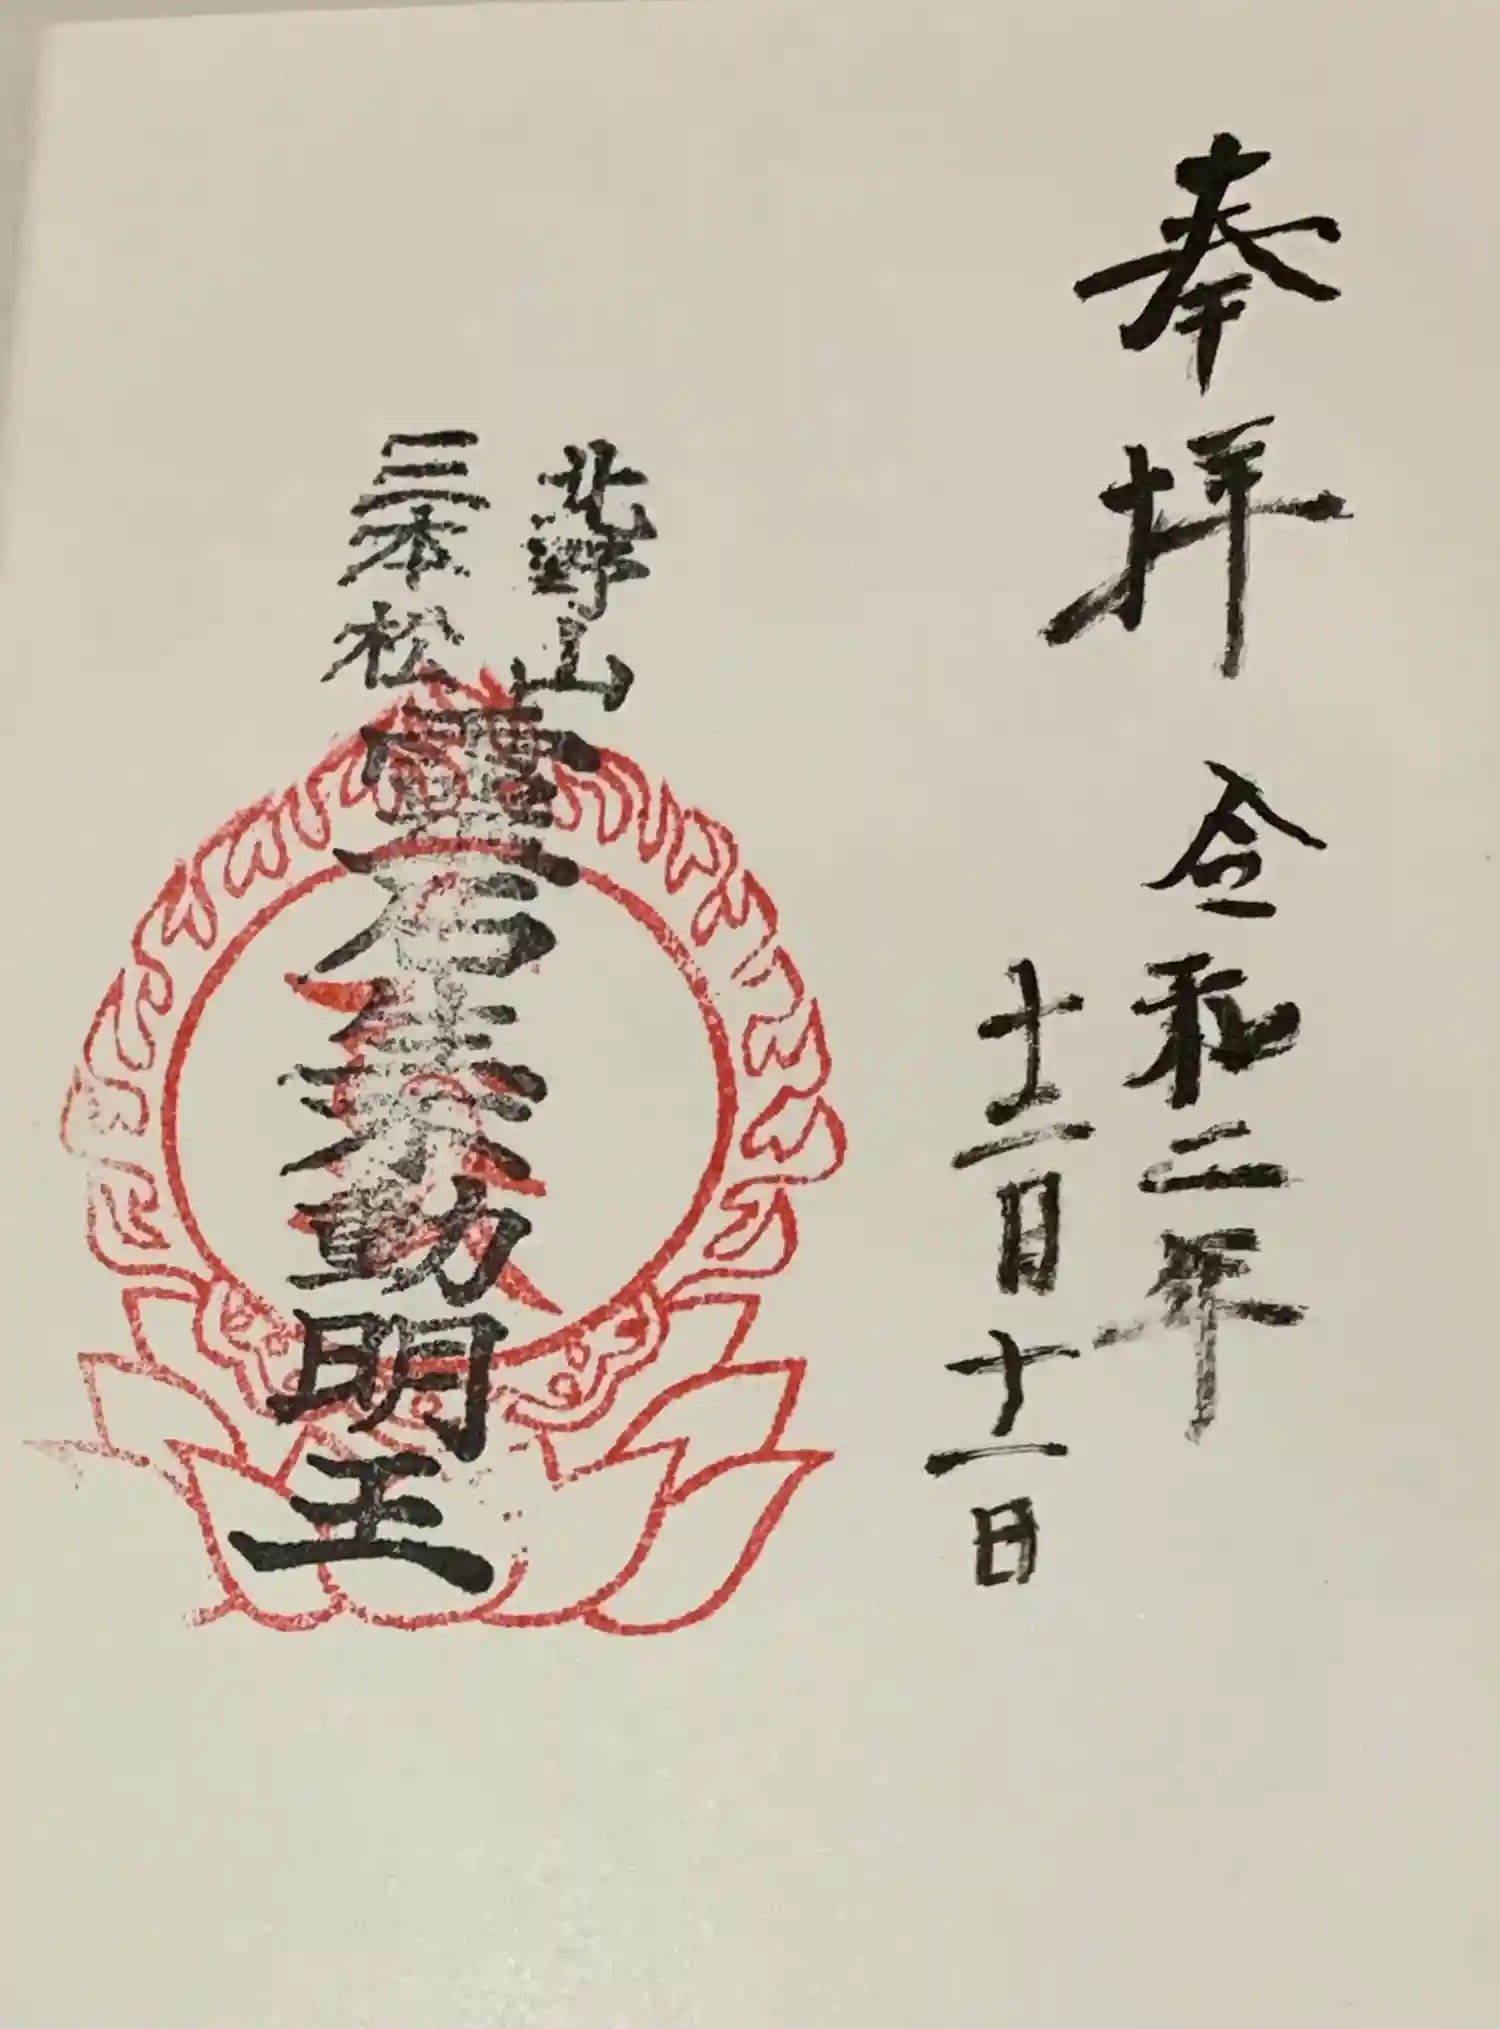 奉拝
令和二年
十二月十一日
北野山
三本松
石 動明王